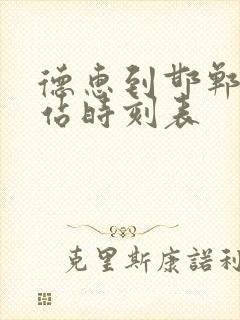 德惠到邯郸
佔時刻表
克里斯康諾利